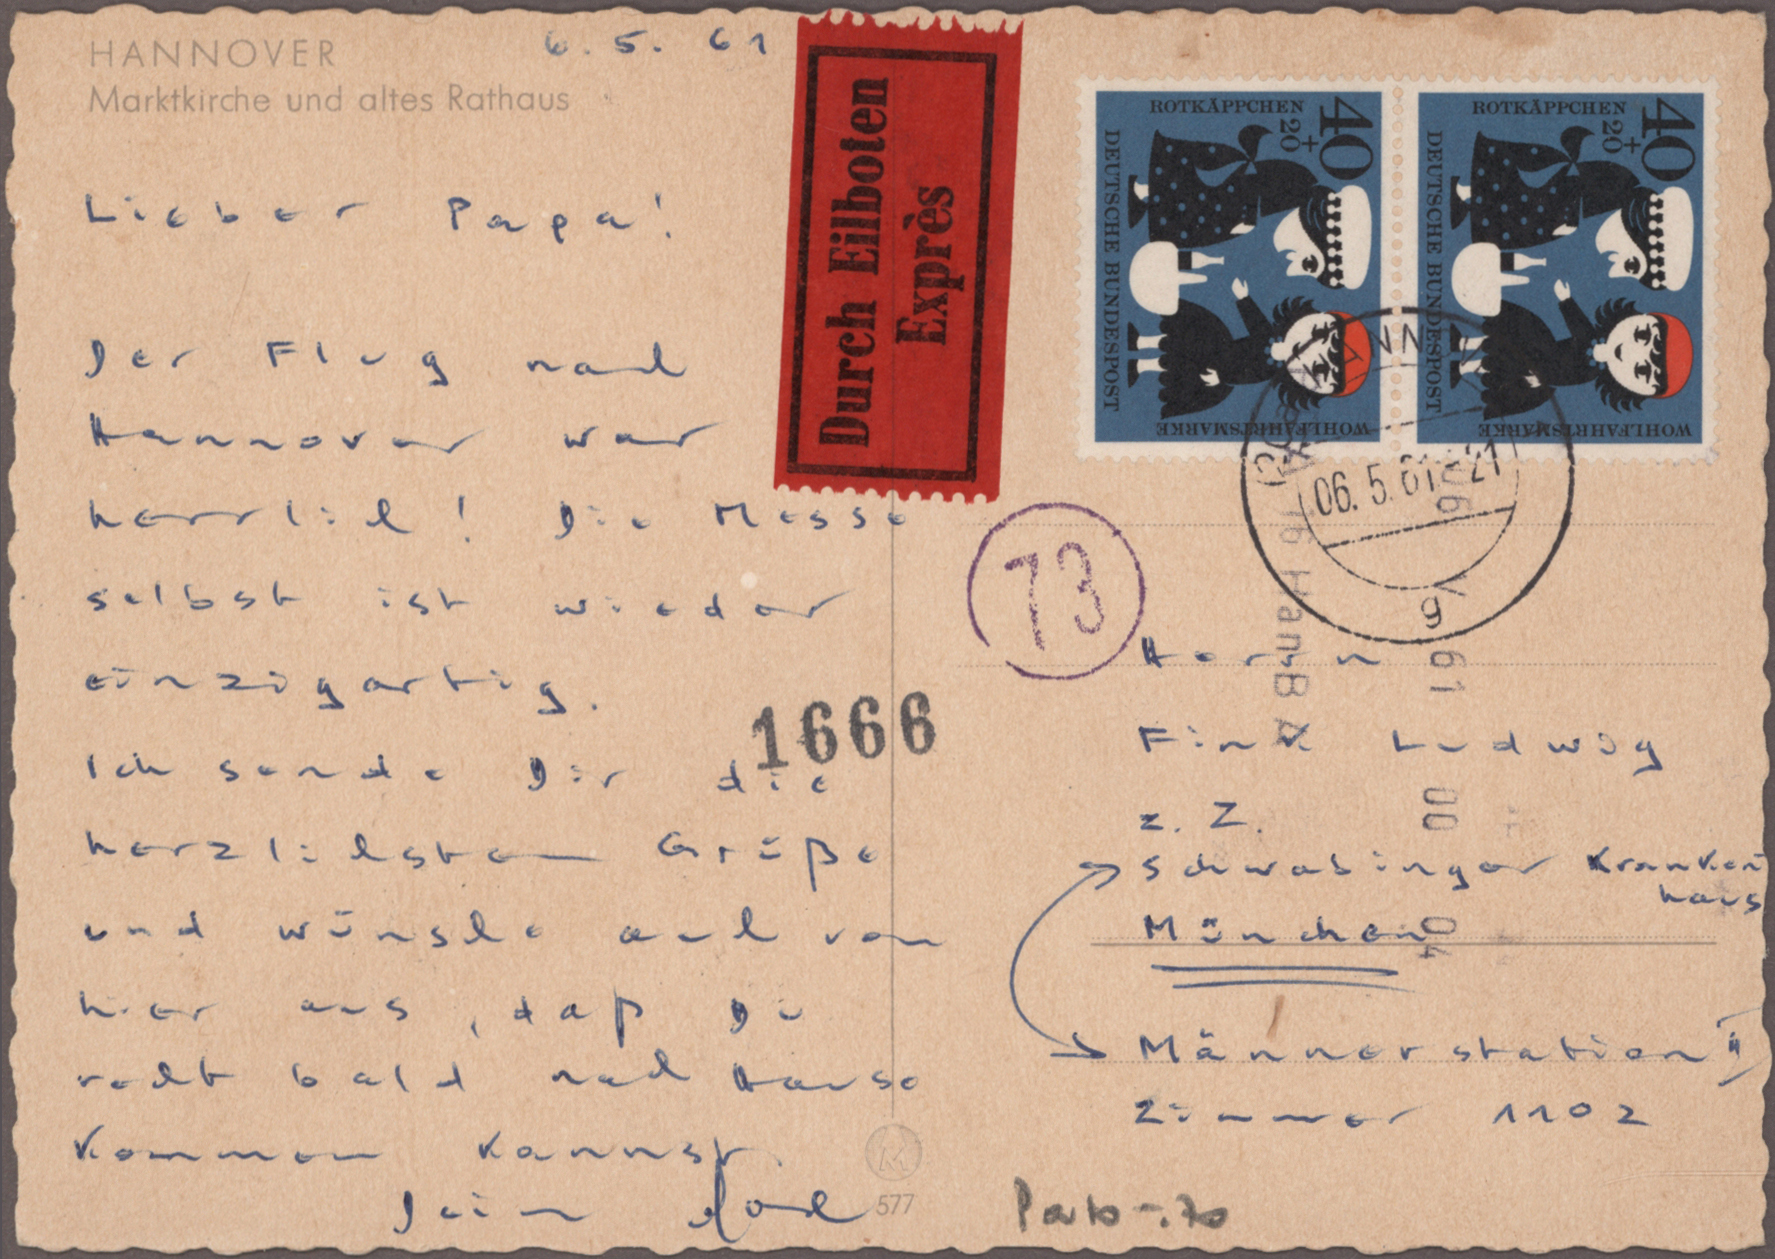 HANNOVER
Marktkirche und altes Rathaus
6.5.61
Lieber Papa!
Der Flug nach
Hannover war
herrlich! Die Messe
selbst ist wieder
einzigartig.
Ich sende Dir die
herzlichsten Grüße
und wünsche auch von
hier aus, daß Du
recht bald nach Hause
kommen kannst.
Dein
577
Durch Eilboten
Exprès
40
+
20
ROTKÄPPCHEN
DEUTSCHE BUNDESPOST
WOHLFAHRTSMARKE
40
+
20
ROTKÄPPCHEN
DEUTSCHE BUNDESPOST
WOHLFAHRTSMARKE
06.5.61-21
g
73
1666
Herrn
Fink Ludwig
z. Z.
Schwabinger Kranken
haus
München
Männerstation II
Zimmer 1102
Porto -.70